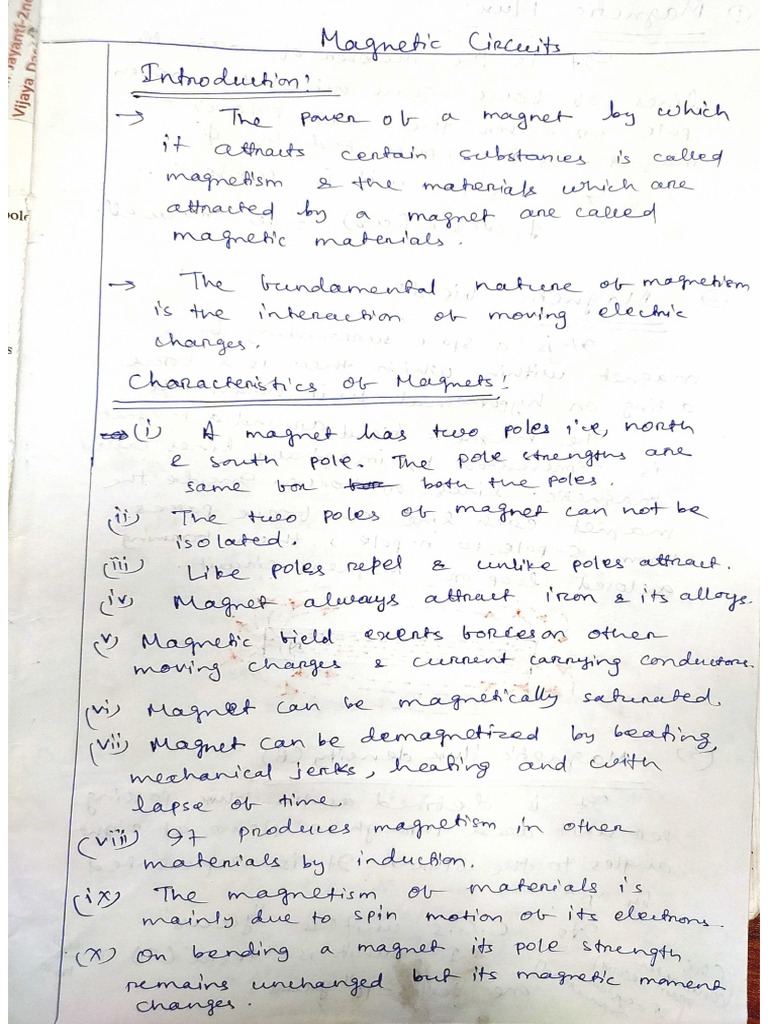 Jayanti-2nd
Vijaya
Magnetic Circuits
Introduction:
→ The power of a magnet by which
it attracts certain substances is called
magnetism & the materials which are
attracted by a magnet are called
magnetic materials.
→ The fundamental nature of magnetism
is the interaction of moving electric
charges.
Characteristics of Magnets:
(i) A magnet has two poles i.e, north
& south pole. The pole strengths are
same for both the poles.
(ii) The two poles of magnet can not be
isolated.
(iii) Like poles repel & unlike poles attract.
(iv) Magnet always attract iron & its alloys.
(v) Magnetic field exerts forces on other
moving charges & current carrying conductors.
(vi) Magnet can be magnetically saturated.
(vii) Magnet can be demagnetized by beating,
mechanical jerks, heating and with
lapse of time.
(viii) It produces magnetism in other
materials by induction.
(ix) The magnetism of materials is
mainly due to spin motion of its electrons.
(x) On bending a magnet its pole strength
remains unchanged but its magnetic moment
changes.